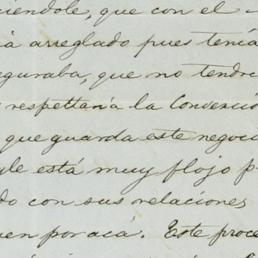 ciendole, que con el
á arreglado pues tenía
eguraba, que no tendre
respettaria la Convenció
que guarda este negoci
yle está muy flojo p
do con sus relaciones
uen por acá. Este proce